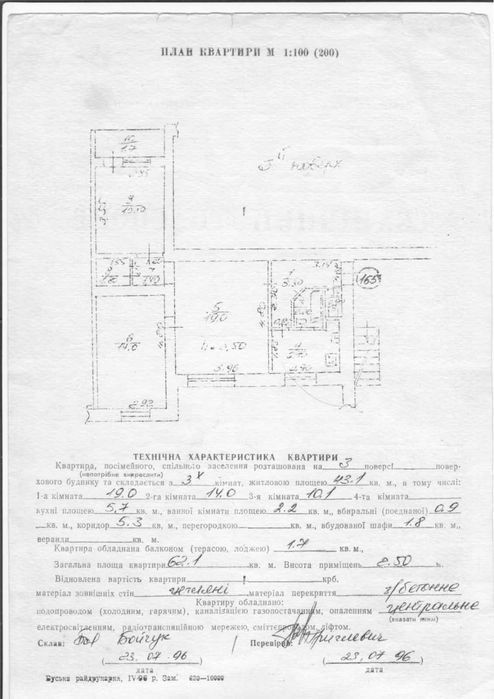 ПЛАН КВАРТИРИ М 1:100 (200)
3й поверх
165
5
19.0
h=2.50
5.96
6
14.0
2.92
1
3.30
ТЕХНІЧНА ХАРАКТЕРИСТИКА КВАРТИРИ
Квартира, посімейного, спільного заселення розташована на 3 поверсі повер-
(непотрібне викреслити)
хового будинку та складається з 3х кімнат, житловою площею 43.1 кв. м., а тому числі:
1-а кімната 19.0 2-га кімната 14.0 3-я кімната 10.1 4-та кімната
кухні площею 5,7 кв. м., ванної кімнати площею 2.2 кв. м., вбиральні (поєднаної) 0.9
кв. м., коридор 5.3 кв. м., перегородкою кв. м., вбудованої шафи 1.8 кв. м.,
веранди кв. м.
Квартира обладнана балконом (терасою, лоджею) 1.7 кв. м.,
Загальна площа квартири 62.1 кв. м. Висота приміщень 2.50 м.
Відновлена вартість квартири крб,
матеріал зовнішніх стін цегляні матеріал перекриття з/бетонне
Квартиру обладнано:
водопроводом (холодним, гарячим), каналізацією газопостачанням, опаленням центральне
(вказати яким)
електроосвітленням, радіотрансляційною мережею, сміттєпроводом, ліфтом.
Склав: Бойчук Перевірив:
23.07.96 23.07.96
дата дата
Буська райдрукарня, ІV-96 р. Зам. 620—10000